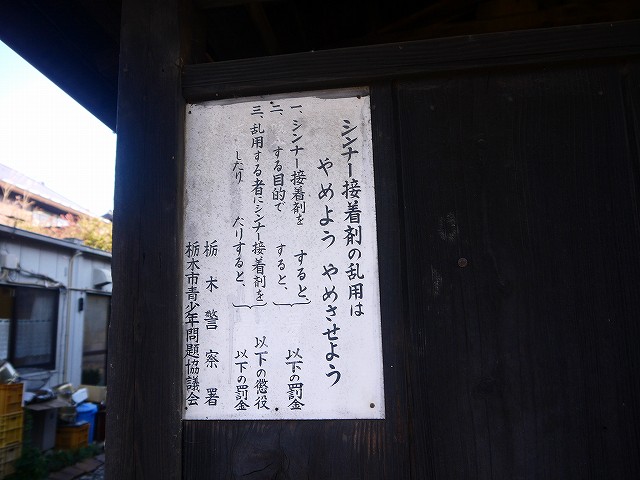 シンナー接着剤の乱用は
やめよう やめさせよう
一、シンナー接着剤を すると、
二、 する目的で すると、 以下の罰金
三、乱用する者にシンナー接着剤を 以下の懲役
したり たりすると、 以下の罰金
栃木警察署
栃木市青少年問題協議会